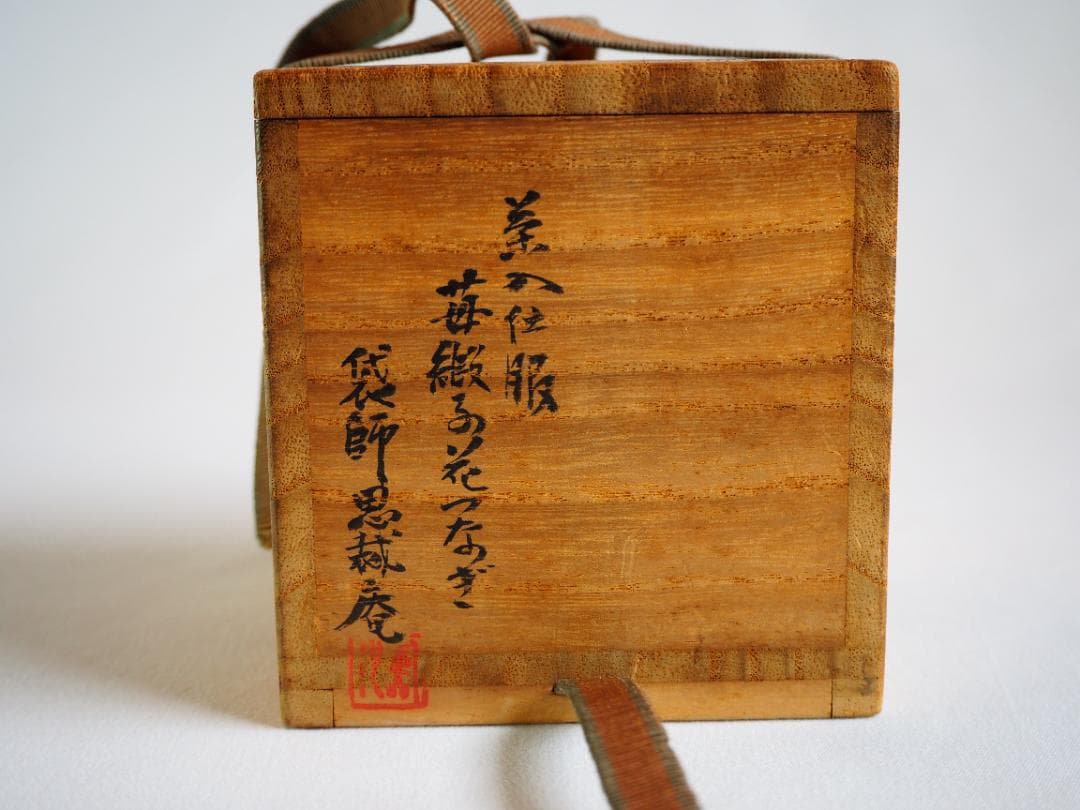 茶入仕服
苺緞子花つなぎ
袋師思裁庵